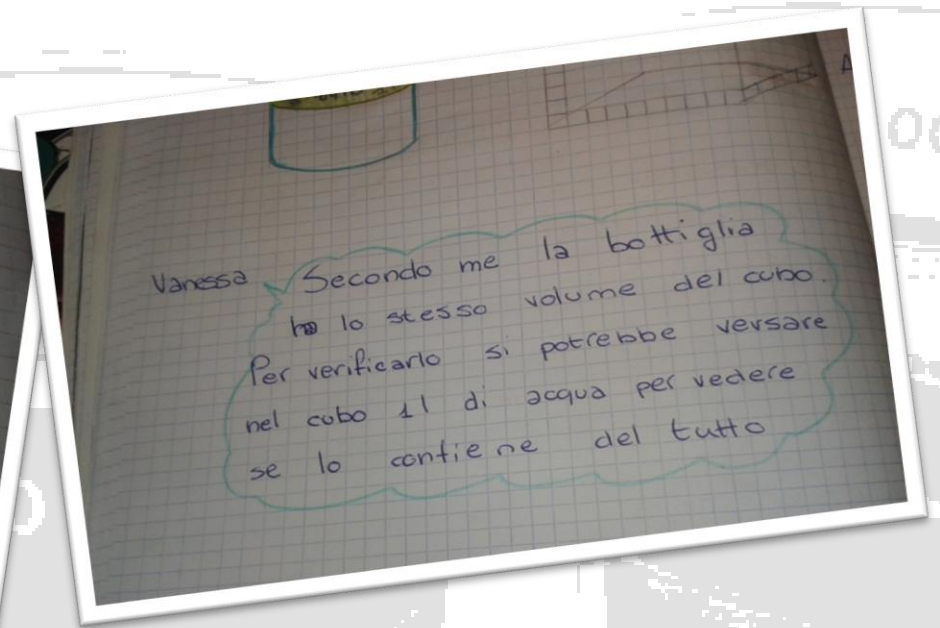 Vanessa Secondo me la bottiglia
ha lo stesso volume del cubo.
Per verificarlo si potrebbe versare
nel cubo 1l di acqua per vedere
se lo contiene del tutto